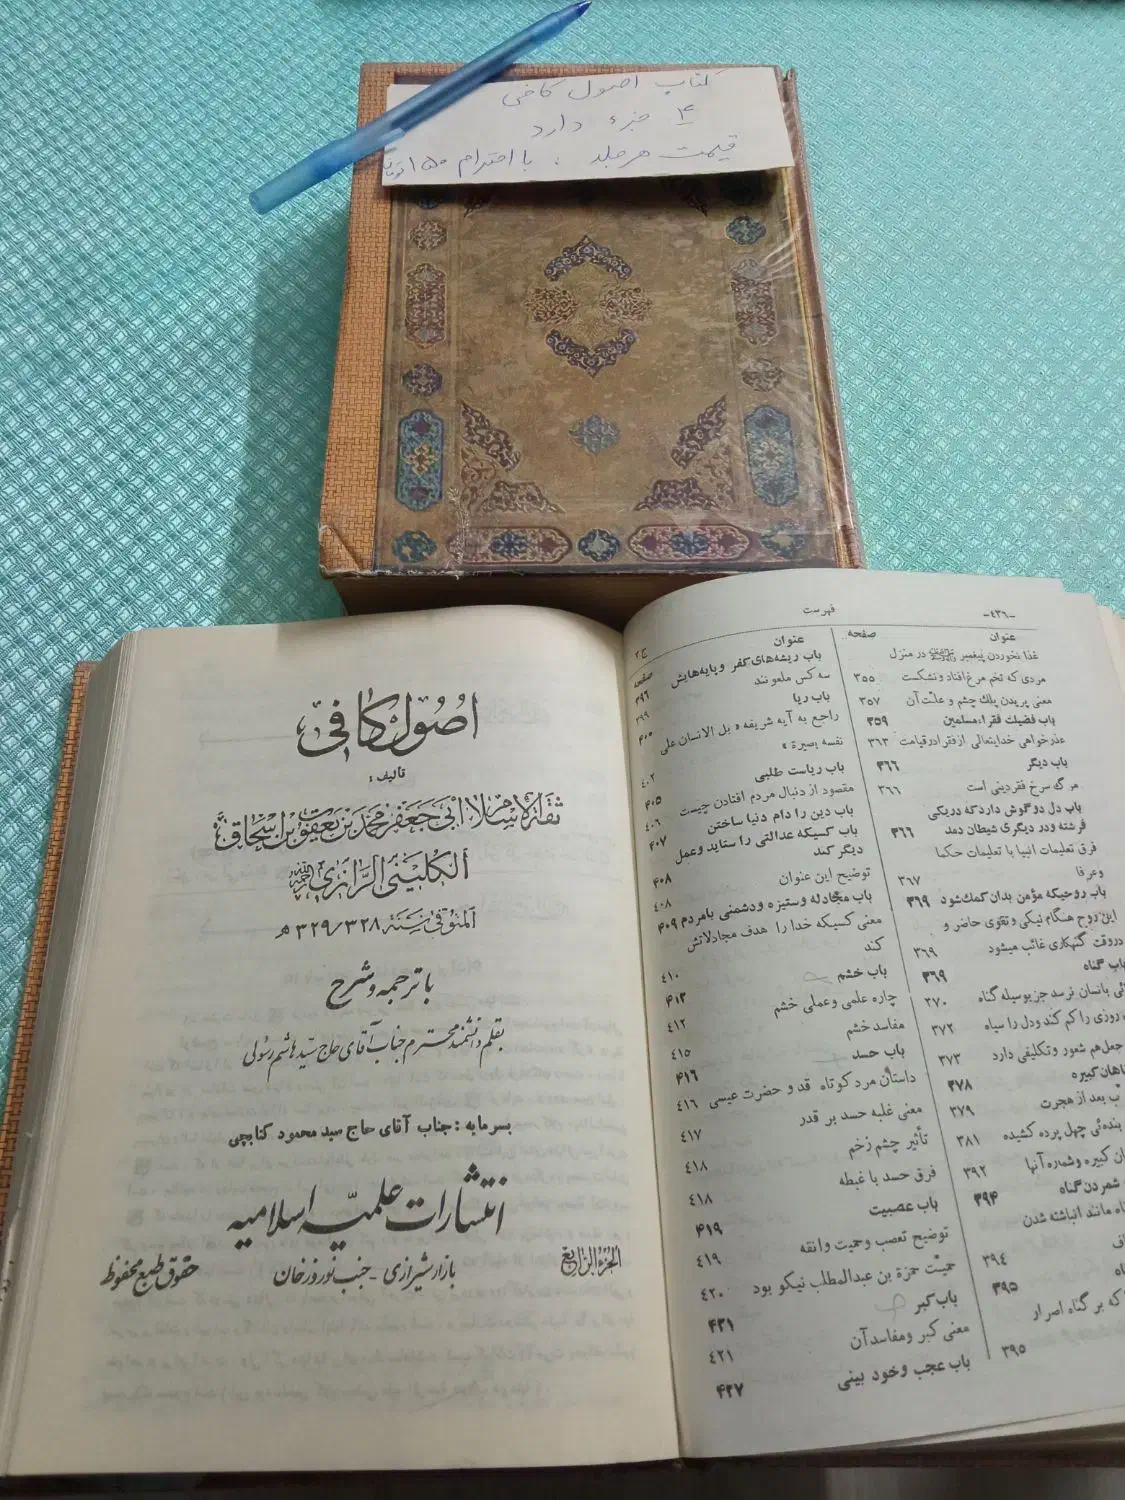 کتاب اصول کافی
۴ جزء دارد
قیمت هر جلد : با احترام ۱۵۰ تومان
اصول کافی
تالیف :
ثقة الاسلام ابی جعفر محمد بن یعقوب بن اسحاق
الکلینی الرازی رحمه الله
المتوفی سنة ۳۲۹/۳۲۸ ه
با ترجمه و شرح
بقلم دانشمند محترم جناب آقای حاج سید هاشم رسولی
بسرمایه : جناب آقای حاج سید محمود کتابچی
انتشارات علمیه اسلامیه
بازار شیرازی - جنب نوروزخان
حقوق طبع محفوظ
الجزء الرابع
-۴۳۶-
فهرست
ج۲
عنوان صفحه
غذا نخوردن پیغمبر در منزل
مردی که تخم مرغ افتاد و نشکست ۳۵۵
معنی پریدن پلك چشم و علت آن ۳۵۷
باب فضیلت فقراء مسلمین ۳۵۹
عذرخواهی خدایتعالی از فقرا در قیامت ۳۶۳
باب دیگر ۳۶۶
مرگ سرخ فقر دینی است ۳۶۶
باب دل دو گوش دارد که در یکی
فرشته و در دیگری شیطان دمد ۳۶۶
فرق تعلیمات انبیا با تعلیمات حکما
و عرفا ۳۶۷
باب روحیکه مؤمن بدان کمك شود ۳۶۹
این روح هنگام نیکی و تقوی حاضر و
در وقت گنهکاری غائب میشود ۳۶۹
باب گناه ۳۶۹
بانسان نرسد جز بوسیله گناه ۳۷۰
روزی را کم کند و دل را سیاه ۳۷۲
هم شعور و تکلیفی دارد ۳۷۳
کبیره ۳۷۸
بعد از هجرت ۳۷۹
چهل پرده کشیده ۳۸۱
کبیره و شماره آنها ۳۹۲
شمردن گناه ۳۹۴
مانند انباشته شدن
۳۹۴
۳۹۵
که بر گناه اصرار
۳۹۵
عنوان صفحه
باب ریشه‌های کفر و پایه‌هایش ۳۹۶
سه کس ملعونند ۳۹۹
باب ریا ۴۰۰
راجع به آیه شریفه « بل الانسان علی
نفسه بصیرة » ۴۰۲
باب ریاست طلبی ۴۰۵
مقصود از دنبال مردم افتادن چیست ۴۰۶
باب دین را دام دنیا ساختن ۴۰۷
باب کسیکه عدالتی را ستاید و عمل
دیگر کند ۴۰۸
توضیح این عنوان ۴۰۸
باب مجادله و ستیزه و دشمنی بامردم ۴۰۹
معنی کسیکه خدا را هدف مجادلاتش
کند ۴۱۰
باب خشم ۴۱۲
چاره علمی و عملی خشم ۴۱۲
مفاسد خشم ۴۱۵
باب حسد ۴۱۶
داستان مرد کوتاه قد و حضرت عیسی ۴۱۶
معنی غلبه حسد بر قدر ۴۱۷
تأثیر چشم زخم ۴۱۸
فرق حسد با غبطه ۴۱۸
باب عصبیت ۴۱۹
توضیح تعصب و حمیت و انفه ۴۱۹
حمیت حمزة بن عبدالمطلب نیکو بود ۴۲۰
باب کبر ۴۲۱
معنی کبر و مفاسد آن ۴۲۱
باب عجب و خود بینی ۴۲۷